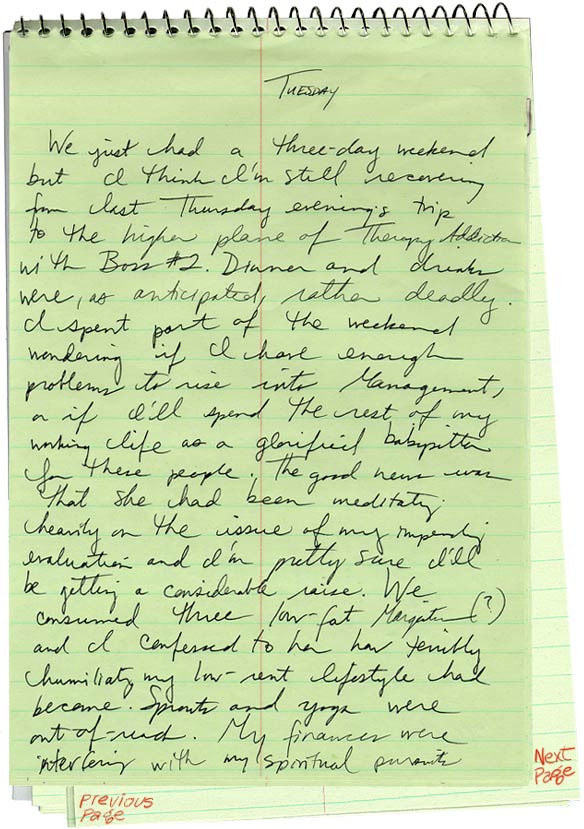 Tuesday
We just had a three-day weekend
but I think I'm still recovering
from last Thursday evening's trip
to the higher plane of Therapy Addiction
with Boss #2. Dinner and drinks
were, as anticipated, rather deadly.
I spent part of the weekend
wondering if I have enough
problems to rise into Management,
or if I'll spend the rest of my
working life as a glorified babysitter
for these people. The good news was
that she had been meditating
heavily on the issue of my impending
evaluation and I'm pretty sure I'll
be getting a considerable raise. We
consumed three low-fat Margaritas (?)
and I confessed to her how terribly
humiliating my low-rent lifestyle had
become. Sprouts and yoga were
out-of-reach. My finances were
interfering with my spiritual pursuits
Next
Page
Previous
Page